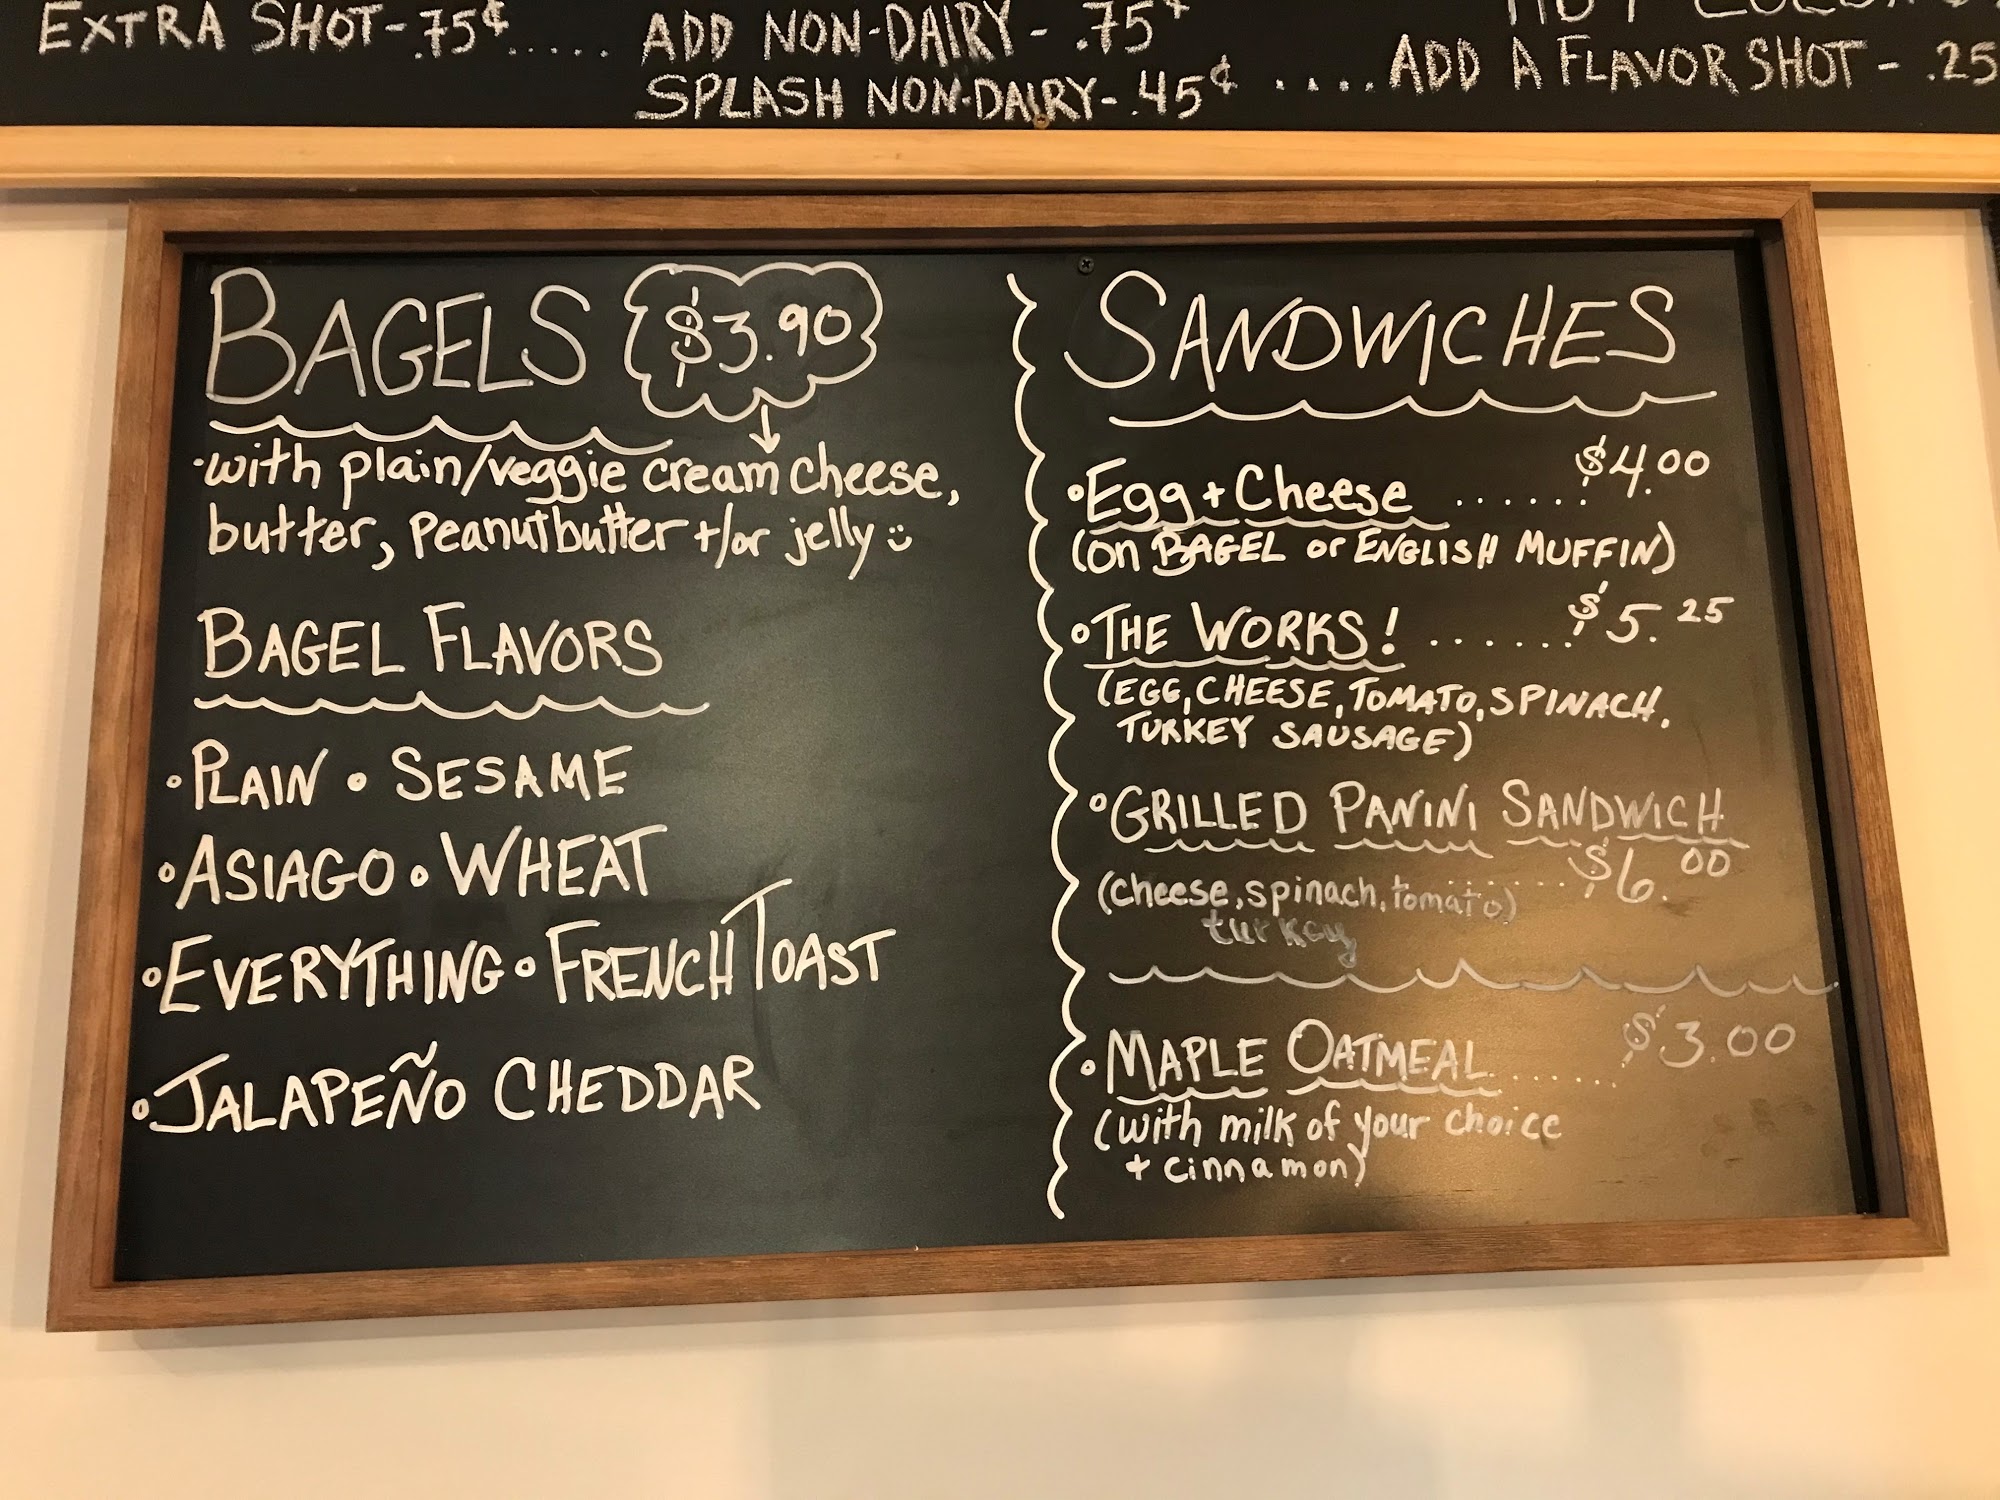 EXTRA SHOT-.75¢..... ADD NON-DAIRY- .75¢
SPLASH NON-DAIRY-.45¢ .... ADD A FLAVOR SHOT - .25
BAGELS $3.90
·with plain/veggie cream cheese,
butter, peanutbutter +/or jelly
BAGEL FLAVORS
·PLAIN • SESAME
•ASIAGO • WHEAT
•EVERYTHING • FRENCH TOAST
•JALAPEÑO CHEDDAR
SANDWICHES
•Egg + Cheese ...... $4.00
(on BAGEL or ENGLISH MUFFIN)
•THE WORKS! ...... $5.25
(EGG, CHEESE, TOMATO, SPINACH,
TURKEY SAUSAGE)
•GRILLED PANINI SANDWICH
(cheese, spinach, tomato) ..... $6.00
turkey
•MAPLE OATMEAL ...... $3.00
(with milk of your choice
+ cinnamon)